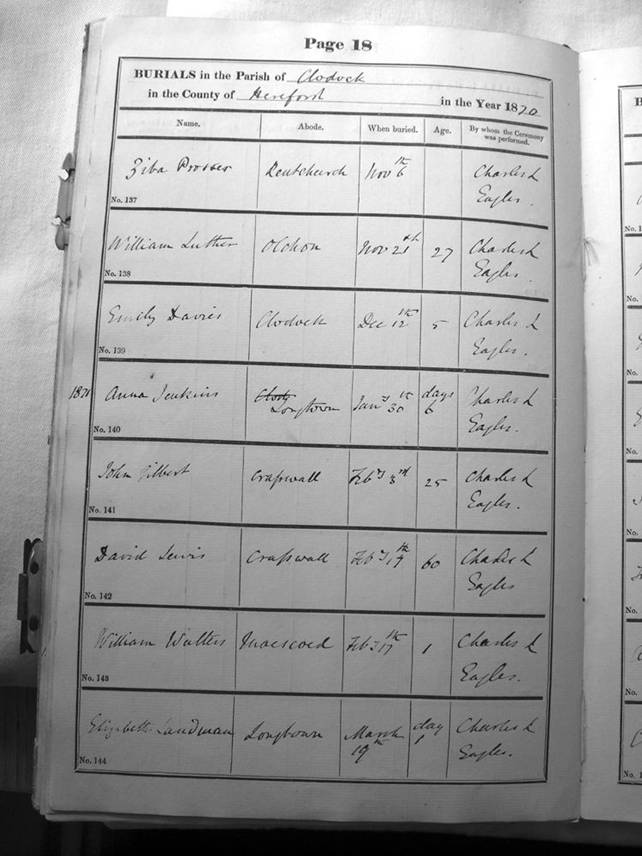 Page 18
BURIALS in the Parish of Clodock
in the County of Hereford in the Year 1870
Name. Abode. When buried. Age. By whom the Ceremony was performed.
Ziba Prosser Kentchurch Nov 6th Charles L
Eagles.
No. 137
William Luther Olchon Nov 21st 27 Charles L
Eagles.
No. 138
Emily Davies Clodock Dec 12th 5 Charles L
Eagles.
No. 139
1871 Anna Jenkins Longtown Jany 30th days 6 Charles L
Eagles.
No. 140
John Gilbert Crasswall Feby 3rd 25 Charles L
Eagles.
No. 141
David Lewis Crasswall Feby 14th 60 Charles L
Eagles
No. 142
William Walters Maescoed Feby 17th 1 Charles L
Eagles.
No. 143
Elizabeth Landman Longtown March 19th day 1 Charles L
Eagles.
No. 144